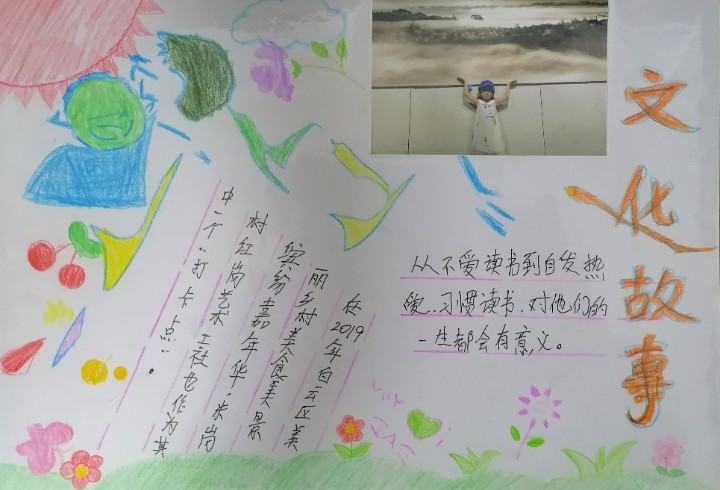 文化故事
从不爱读书到自发热
爱、习惯读书,对他们的
一生都会有意义。
在2019年白云区美
丽乡村美食美景
缤纷嘉年华,米岗
村红岗艺术工社也作为其
中一个“打卡点”.